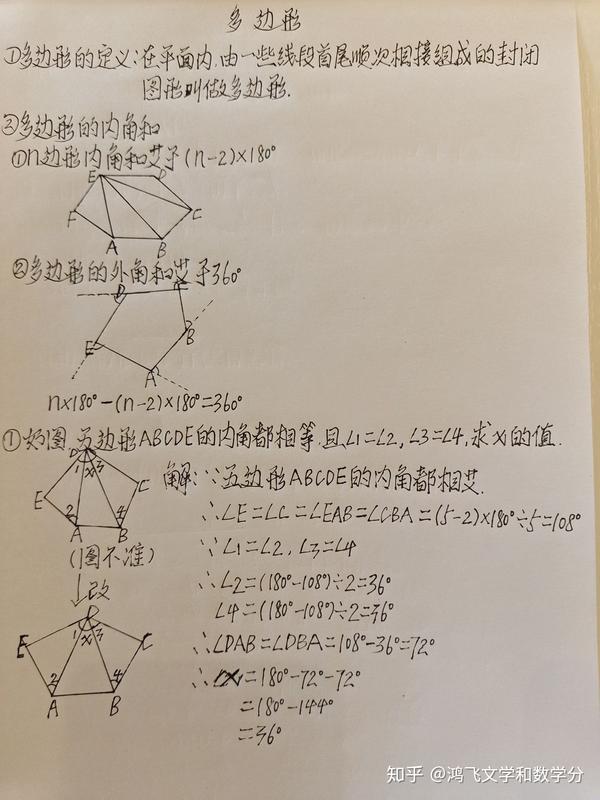 多边形
①多边形的定义:在平面内,由一些线段首尾顺次相接组成的封闭
图形叫做多边形.
②多边形的内角和
①n边形内角和等于(n-2)×180°
E D
F C
A B
②多边形的外角和等于360°
D C
E B
A
n×180°-(n-2)×180°=360°
①如图,五边形ABCDE的内角都相等.且∠1=∠2,∠3=∠4,求x的值.
D
1 x 3
E C
2 4
A B
(图不准)
↓改
D
1 x 3
E C
2 4
A B
解:∵五边形ABCDE的内角都相等.
∴∠E=∠C=∠EAB=∠CBA=(5-2)×180°÷5=108°
∵∠1=∠2,∠3=∠4
∴∠2=(180°-108°)÷2=36°
∠4=(180°-108°)÷2=36°
∴∠DAB=∠DBA=108°-36°=72°
∴x=180°-72°-72°
=180°-144°
=36°
知乎 @鸿飞文学和数学分